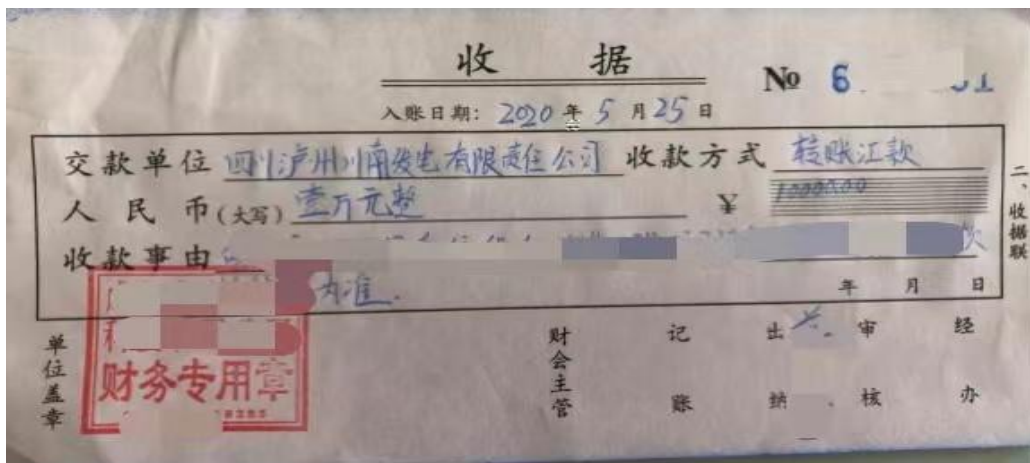 收 据
No 6
入账日期：2020年5月25日
交款单位 四川泸州川南发电有限责任公司 收款方式 转账汇款
人民币(大写) 壹万元整 ¥ 1000000
收款事由 款
为准.
年 月 日
二、收据联
单位盖章
财务专用章
财会主管 记账 出纳 审核 经办